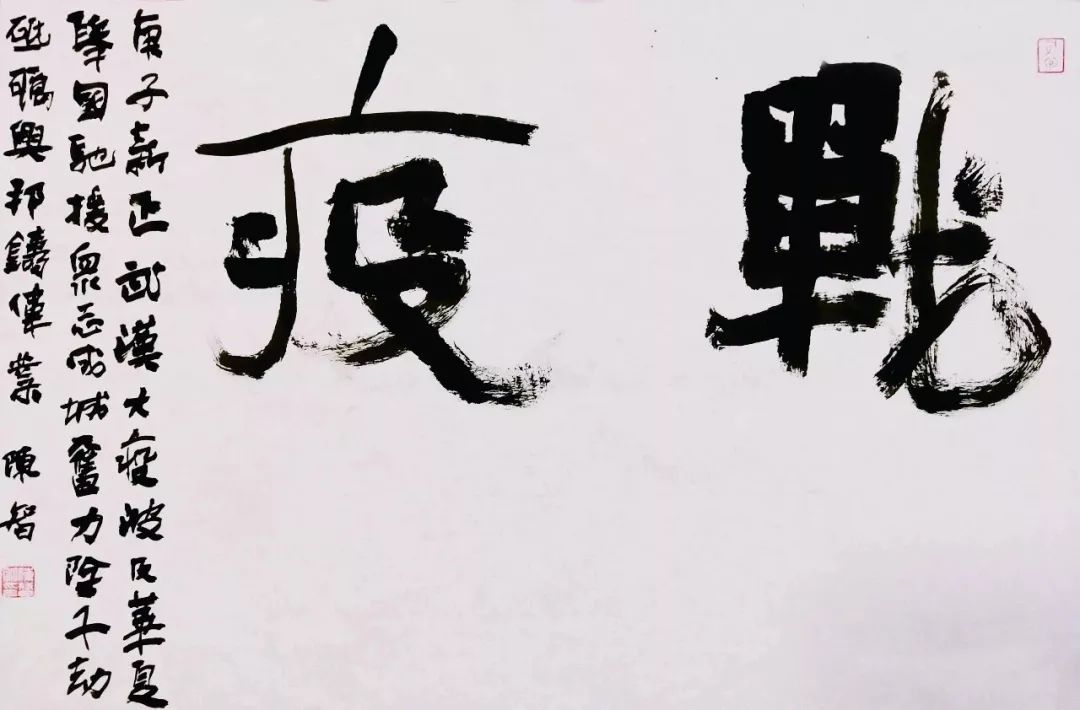 戰疫
庚子新正武漢大疫波及華夏
舉國馳援衆志成城奮力千劫
砥礪興邦鑄偉業 陳智